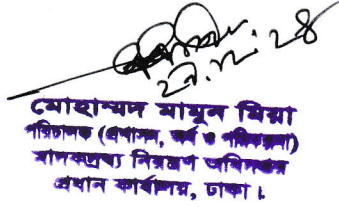 ২৯.১২.২৪
মোহাম্মদ মামুন মিয়া
পরিচালক (প্রশাসন, অর্থ ও পরিকল্পনা)
মাদকদ্রব্য নিয়ন্ত্রণ অধিদপ্তর
প্রধান কার্যালয়, ঢাকা।